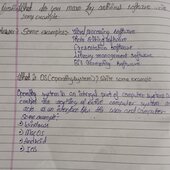 What do you mean by application software with
some example.
Answer: Some examples: Word processing software
Photo editing software
Presentation software
Library management software
Bill Generating software
What is OS (operating system)? Write some example
Operating system is an internal part of computer system to
control the working of entire computer system
acts as an interface b/w the user and computer.
Some example:
1) Windows
2) Mac OS
3) Android
4) IOS